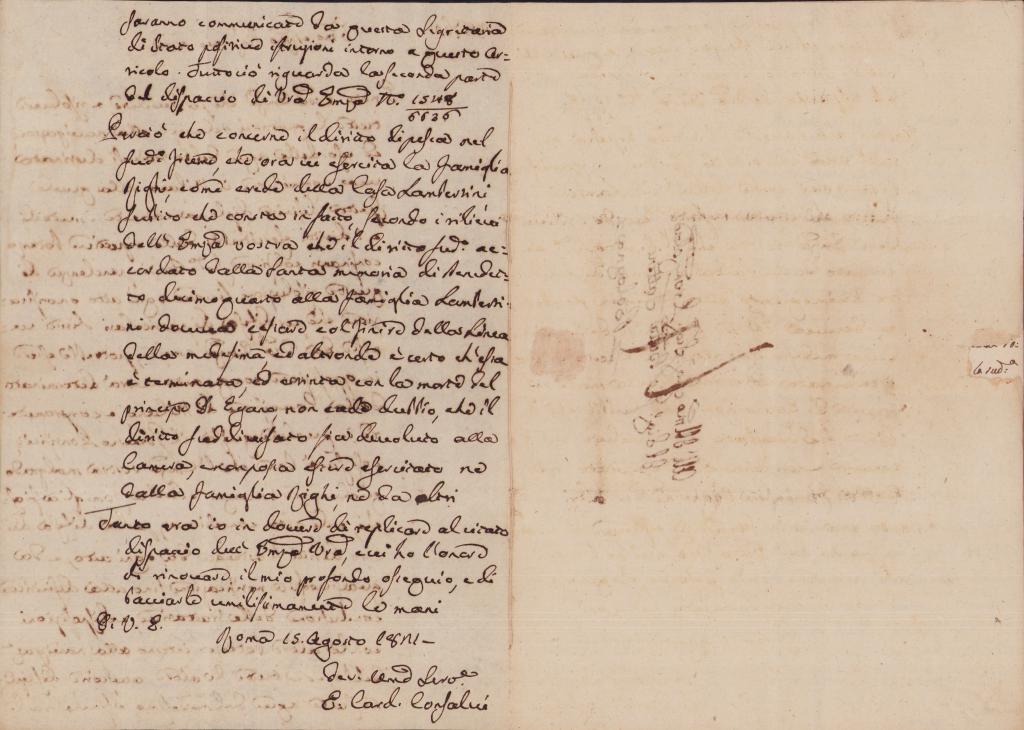 saranno communicate da questa Segretaria
di Stato positive istruzioni intorno a questo Ar=
ticolo. Tuttociò riguarda la seconda parte
del dispaccio di Vra Emza N.° 1548
6636
Perciò che concerne il diritto di pesca nel
sud.° che ora vi esercita la Famiglia
Righi, come erede della Casa Lambertini,
subito che consta in fatto, secondo i rilievi
dell' Emza vostra che il diritto sud.° ac=
cordato dalla santa memoria di Benedet=
to decimoquarto alla famiglia Lamberti
ni doveva cessare col finire della Linea
della medesima ed altronde è certo ch'essa
è terminata, ed estinta con la morte del
principe D. Egano, non cade dubbio, che il
diritto suddivisato sia devoluto alla
Camera, e non possa essere esercitato nè
dalla famiglia Righi, nè da altri
Tanto era io in dovere di replicare al citato
dispaccio dell' Emza Vra, e cui ho l'onore
di rinovare il mio profondo ossequio, e di
baciarle umilissimamente le mani
Di V. E.
Roma 15. Agosto 18
Dev: Umo Servo.
E. Card. Consalvi
la sud.a